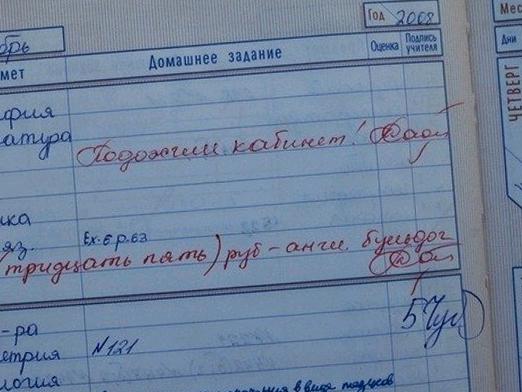 Год 2008
Мес
брь
мет Домашнее задание Оценка Подпись учителя
Дни
ЧЕТВЕРГ
фия
атура Подожгли кабинет!
ика
яз. Ex. 6 p. 63
тридцать пять) руб - англ. бульдог
-ра 5
етрия №121
логия в виде